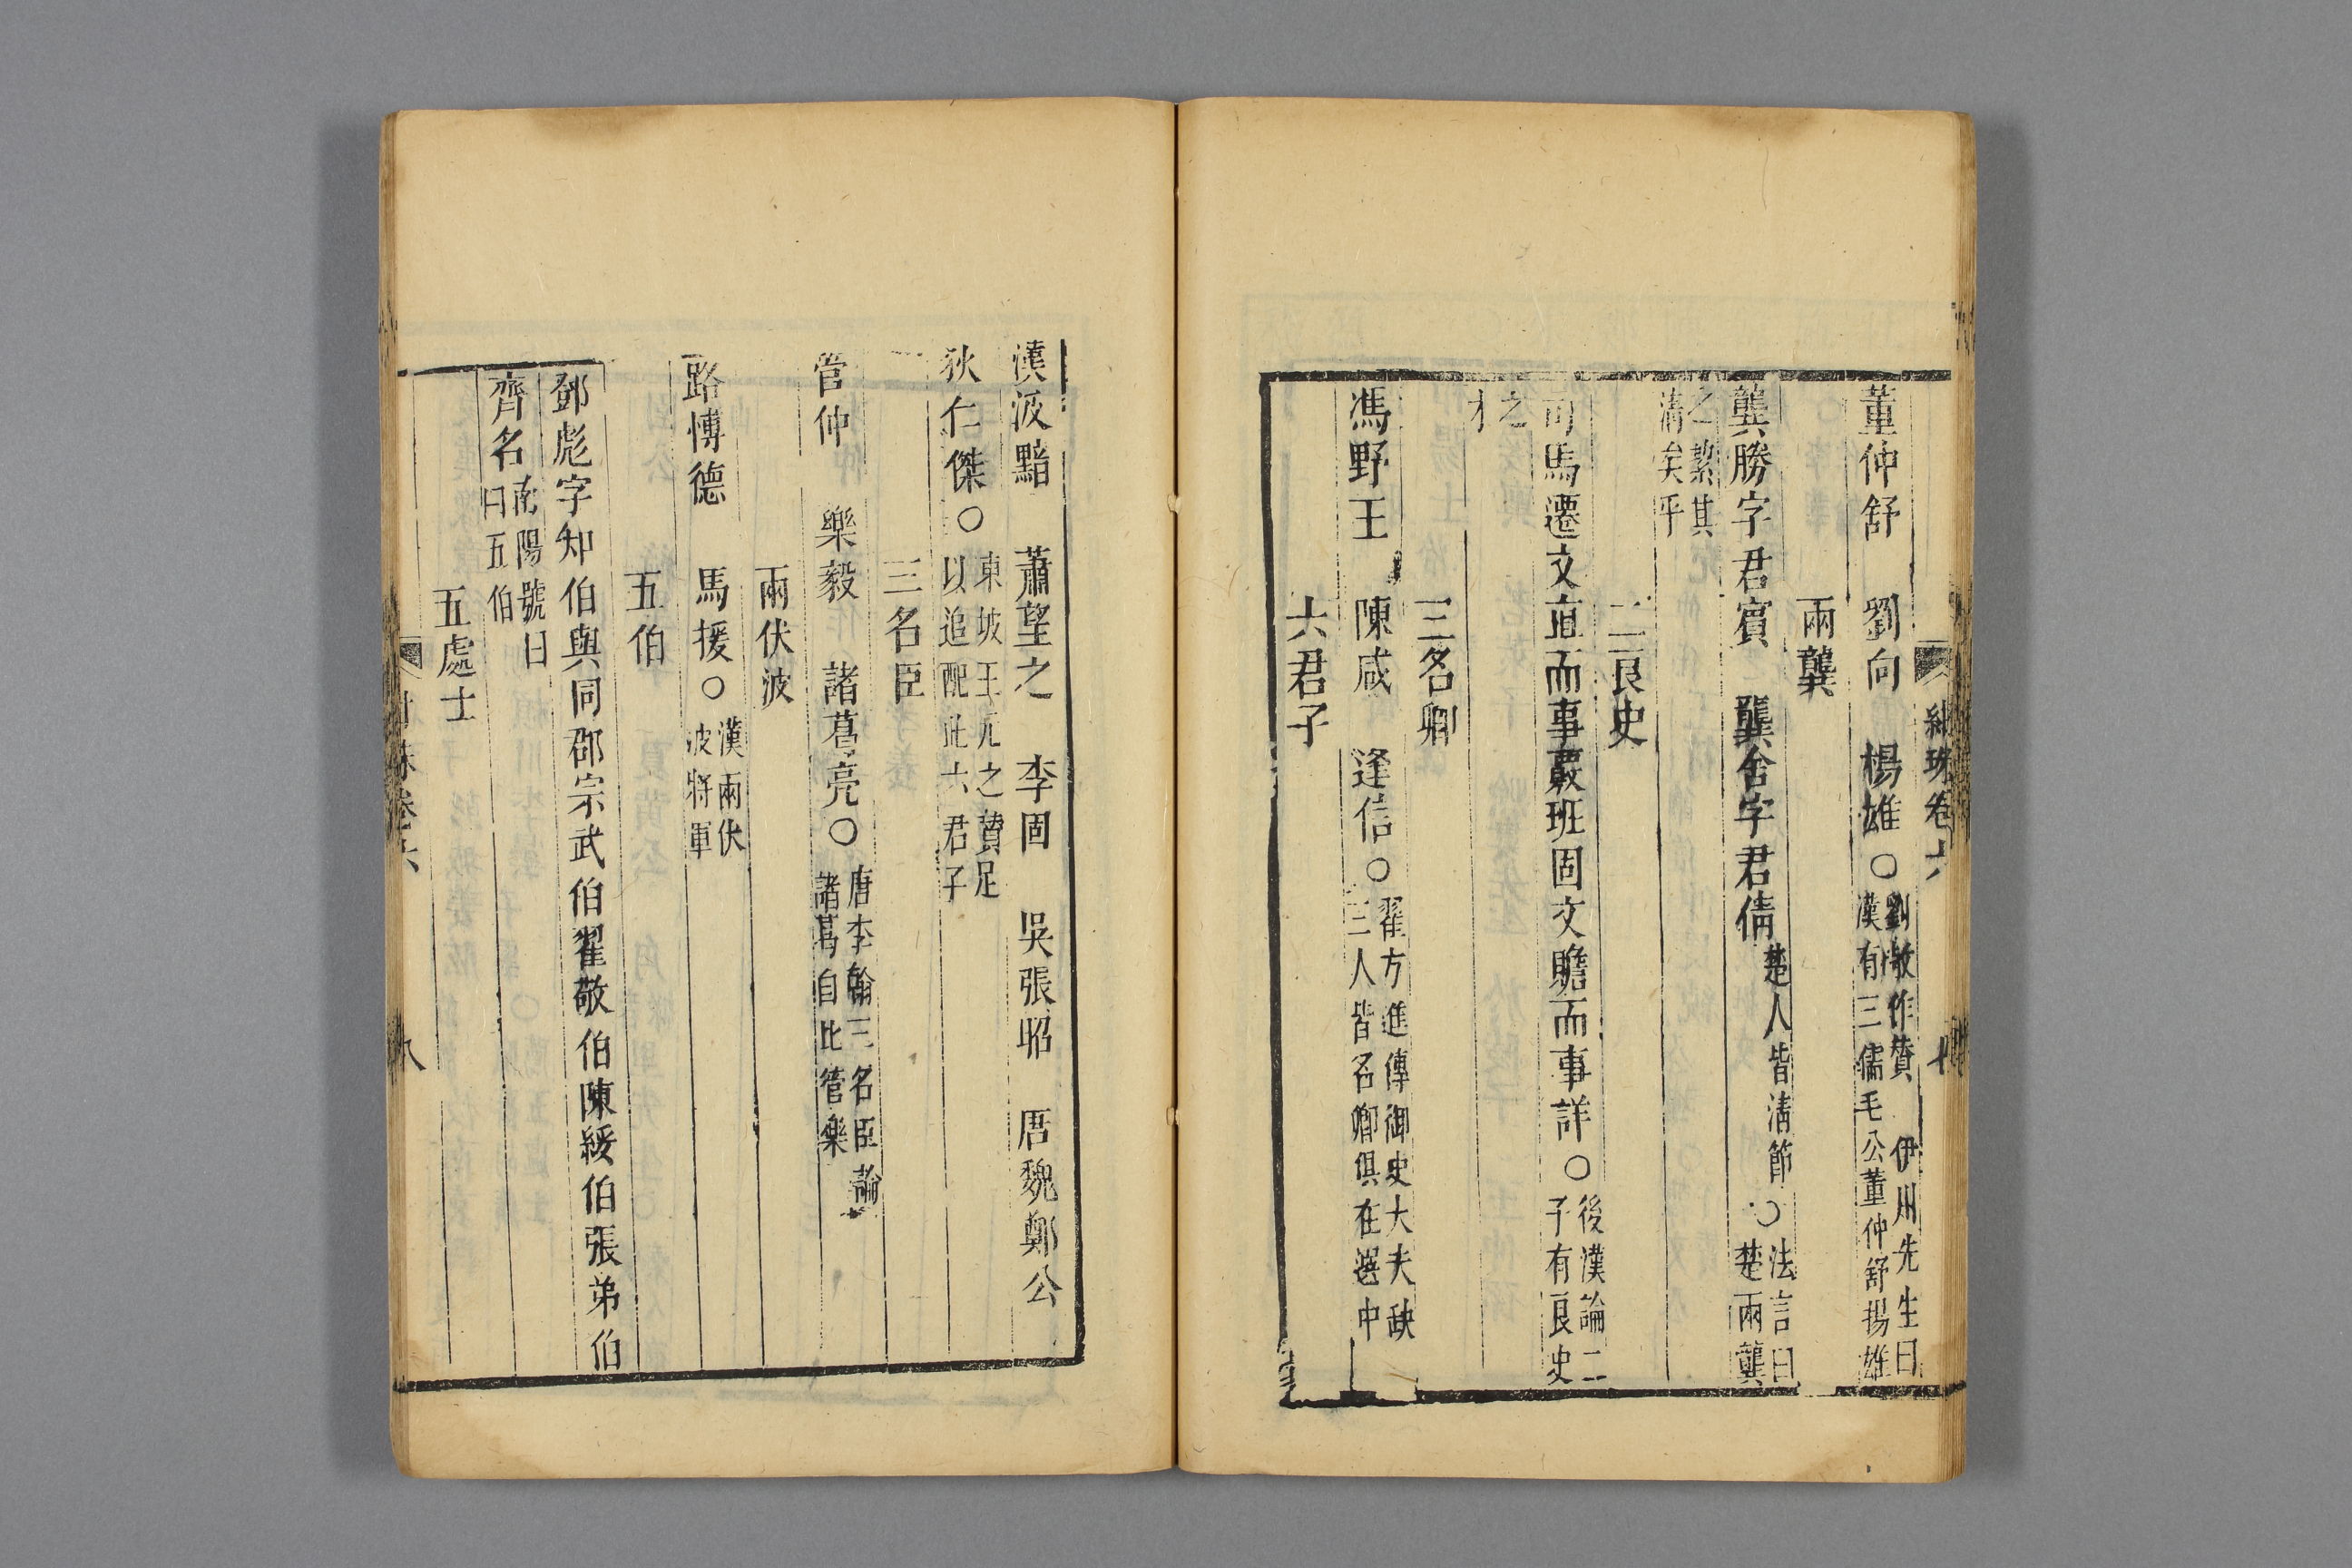 紺珠卷六 七
董仲舒 劉向 楊雄〇劉敞作贊 伊川先生曰
漢有三儒毛公董仲舒揚雄
兩龔
龔勝字君賓 龔舍字君倩楚人皆清節〇法言曰
楚兩龔
之絜其
清矣乎
二良史
司馬遷文直而事覈班固文贍而事詳〇後漢論二
子有良史
之
才
三名卿
馮野王 陳咸 逢信〇翟方進傳御史大夫缺
三人皆名卿俱在選中
六君子
漢汲黯 蕭望之 李固 吳張昭 唐魏鄭公
狄仁傑〇東坡王元之贊足
以追配此六君子
三名臣
管仲 樂毅 諸葛亮〇唐李翰三名臣論
諸葛自比管樂
兩伏波
路博德 馬援〇漢兩伏
波將軍
五伯
鄧彪字知伯與同郡宗武伯翟敬伯陳綏伯張弟伯
齊名南陽號曰
曰五伯
五處士
紺珠卷六 八